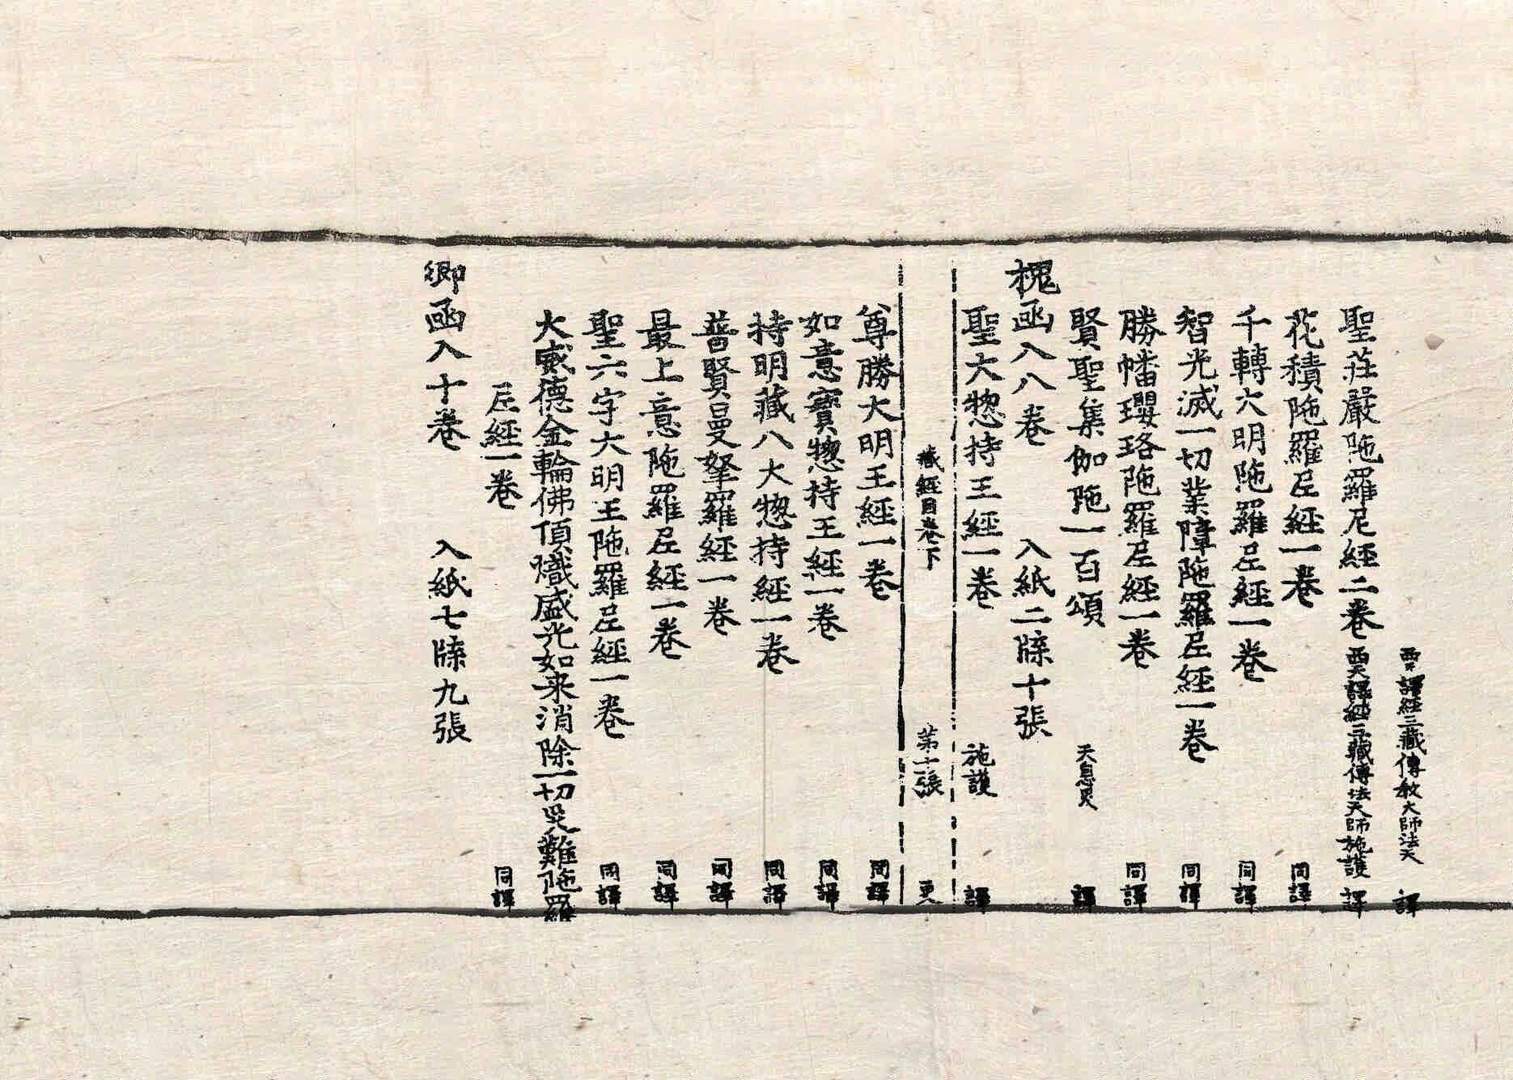 西天譯經三藏傳教大師法天 譯
聖莊嚴陁羅尼經二卷 西天譯經三藏傳法大師施護 譯
花積陁羅尼經一卷 同譯
千轉大明陁羅尼經一卷 同譯
智光滅一切業障陁羅尼經一卷 同譯
勝幡瓔珞陁羅尼經一卷 同譯
賢聖集伽陁一百頌 天息灾 譯
槐函入八卷 入紙二牒十張
聖大惣持王經一卷 施護 譯
藏經目卷下 第十張 更
尊勝大明王經一卷 同譯
如意寶惣持王經一卷 同譯
持明藏八大惣持經一卷 同譯
普賢曼拏羅經一卷 同譯
最上意陁羅尼經一卷 同譯
聖六字大明王陁羅尼經一卷 同譯
大威德金輪佛頂熾盛光如来消除一切災難陁羅
尼經一卷 同譯
卿函入十卷 入紙七牒九張